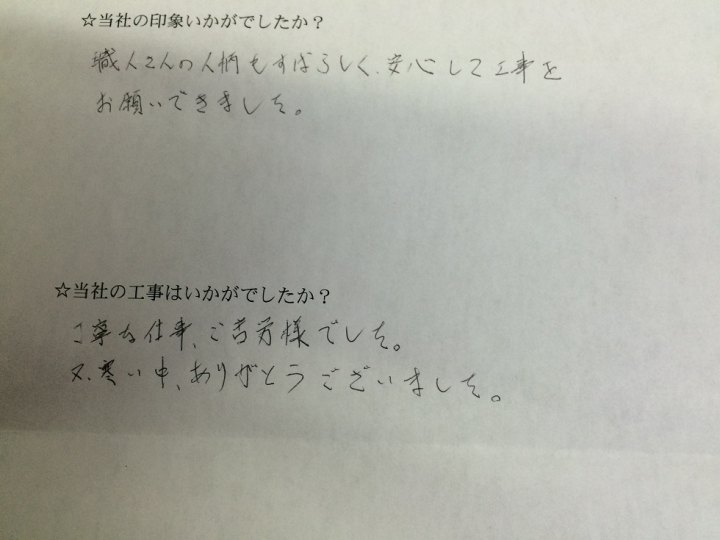 ☆当社の印象いかがでしたか？
職人さんの人柄もすばらしく、安心して工事を
お願いできました。
☆当社の工事はいかがでしたか？
丁寧な仕事、ご苦労様でした。
又、寒い中、ありがとうございました。